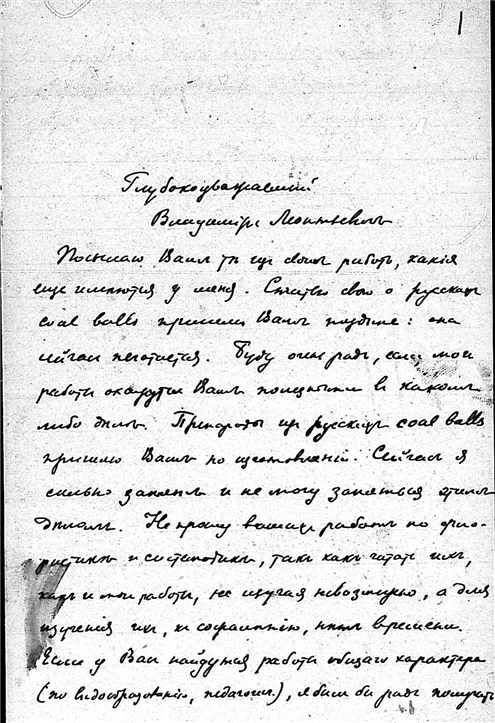 1
Глубокоуважаемый
Владимiръ Леонтьевичъ
Посылаю Вамъ тѣ изъ своихъ работъ, какiя
еще имѣются у меня. Статью свою о русскихъ
coal balls пришлю Вамъ позднѣе: она
сейчас печатается. Буду очень радъ, если мои
работы окажутся Вамъ полезными в какомъ
либо дѣлѣ. Препараты из русскихъ coal balls
пришлю Вамъ по изготовленiи. Сейчас я
сильно занятъ и не могу заняться этимъ
дѣломъ. Не прошу вашихъ работъ по фло-
ристикѣ и систематикѣ, такъ какъ читать ихъ,
какъ и мои работы, не изучая невозможно, а для
изученiя их, к сожалѣнiю, нѣтъ времени.
Если у Вас найдутся работы общаго характера
(по видообразованiю, педагогич.), я был бы радъ получить